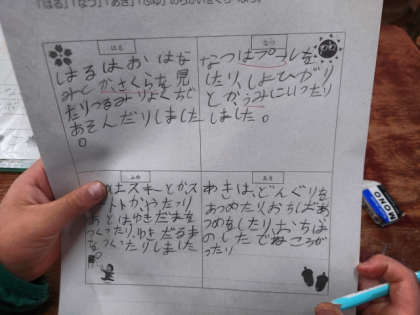 「はる」「なつ」「あき」「ふゆ」の
はる
はるはおはな
みとかさくらを見
たり
あそんだりしました
。
なつ
なつはプールを
したり、しおひがり
とかうみにいったり
しました。
ふゆ
スキーとかス
あとはゆきだまを
つくったり、ゆきだるま
をつくったりしました
。
あき
あきは、どんぐりを
あつめたり、おちばあ
つめをしたり、おちば
のしたでねころが
ったり
MONO